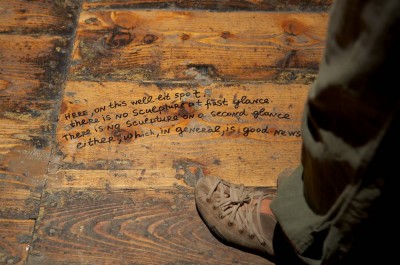 HERE, ON this well lit spot,
there is no sculpture at first glance.
There is no sculpture on a second glance
either, which, in general, is good news